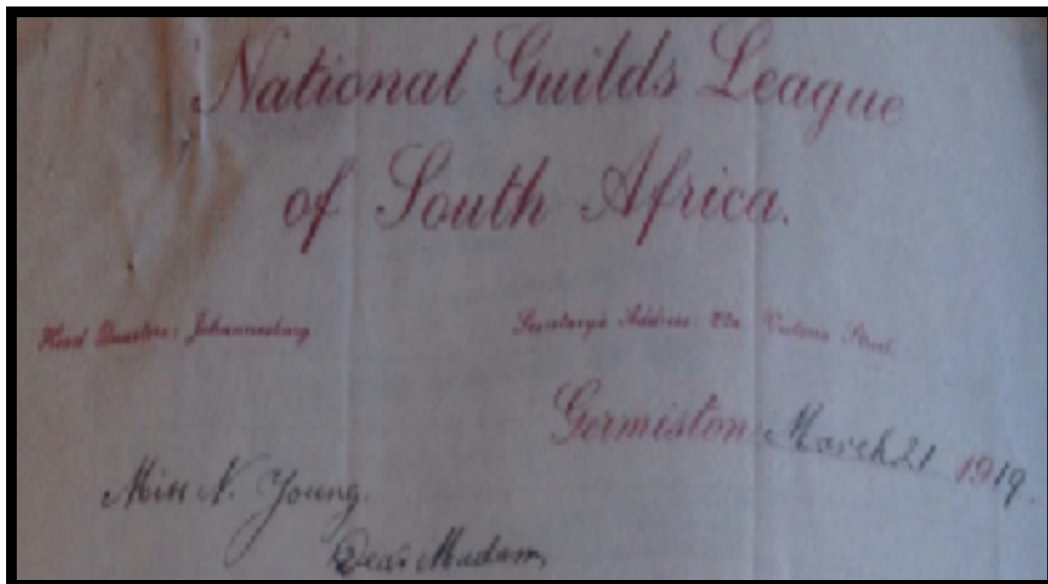 National Guilds League
of South Africa.
Head Quarters: Johannesburg Secretary's Address: 22a Victoria Street.
Germiston March 21 1919.
Miss N. Young.
Dear Madam,